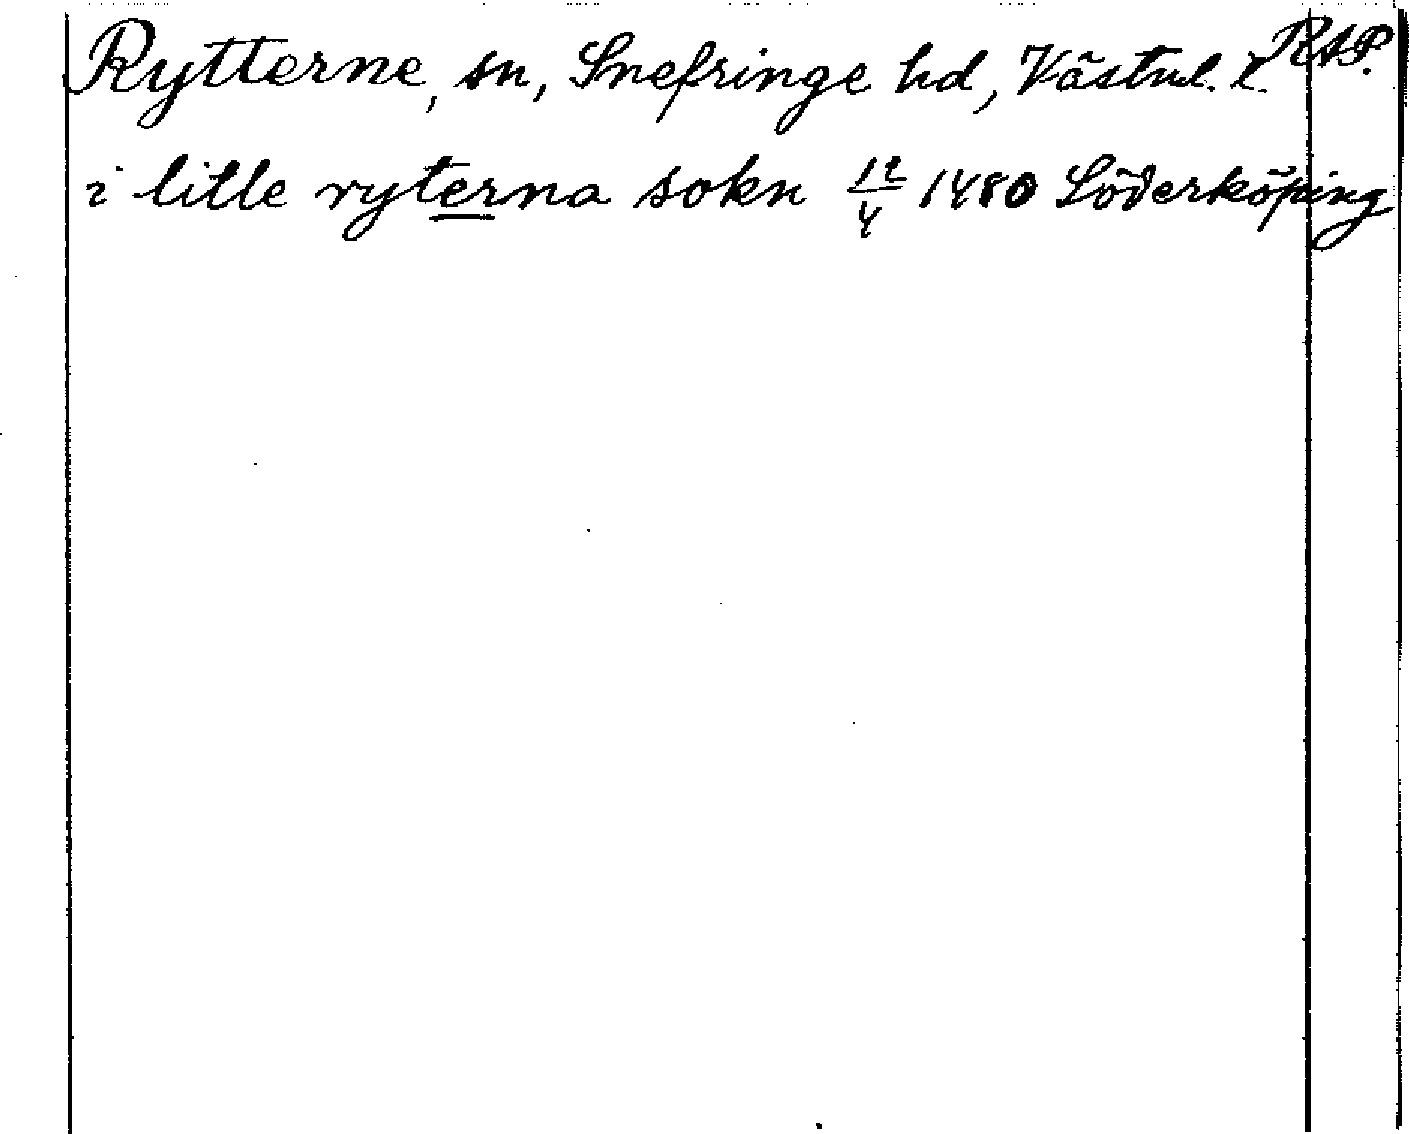 Rytterne, sn, Snefringe hd, Västml. l. RAP.
i litle ryterna sokn 12/4 1480 Söderköping